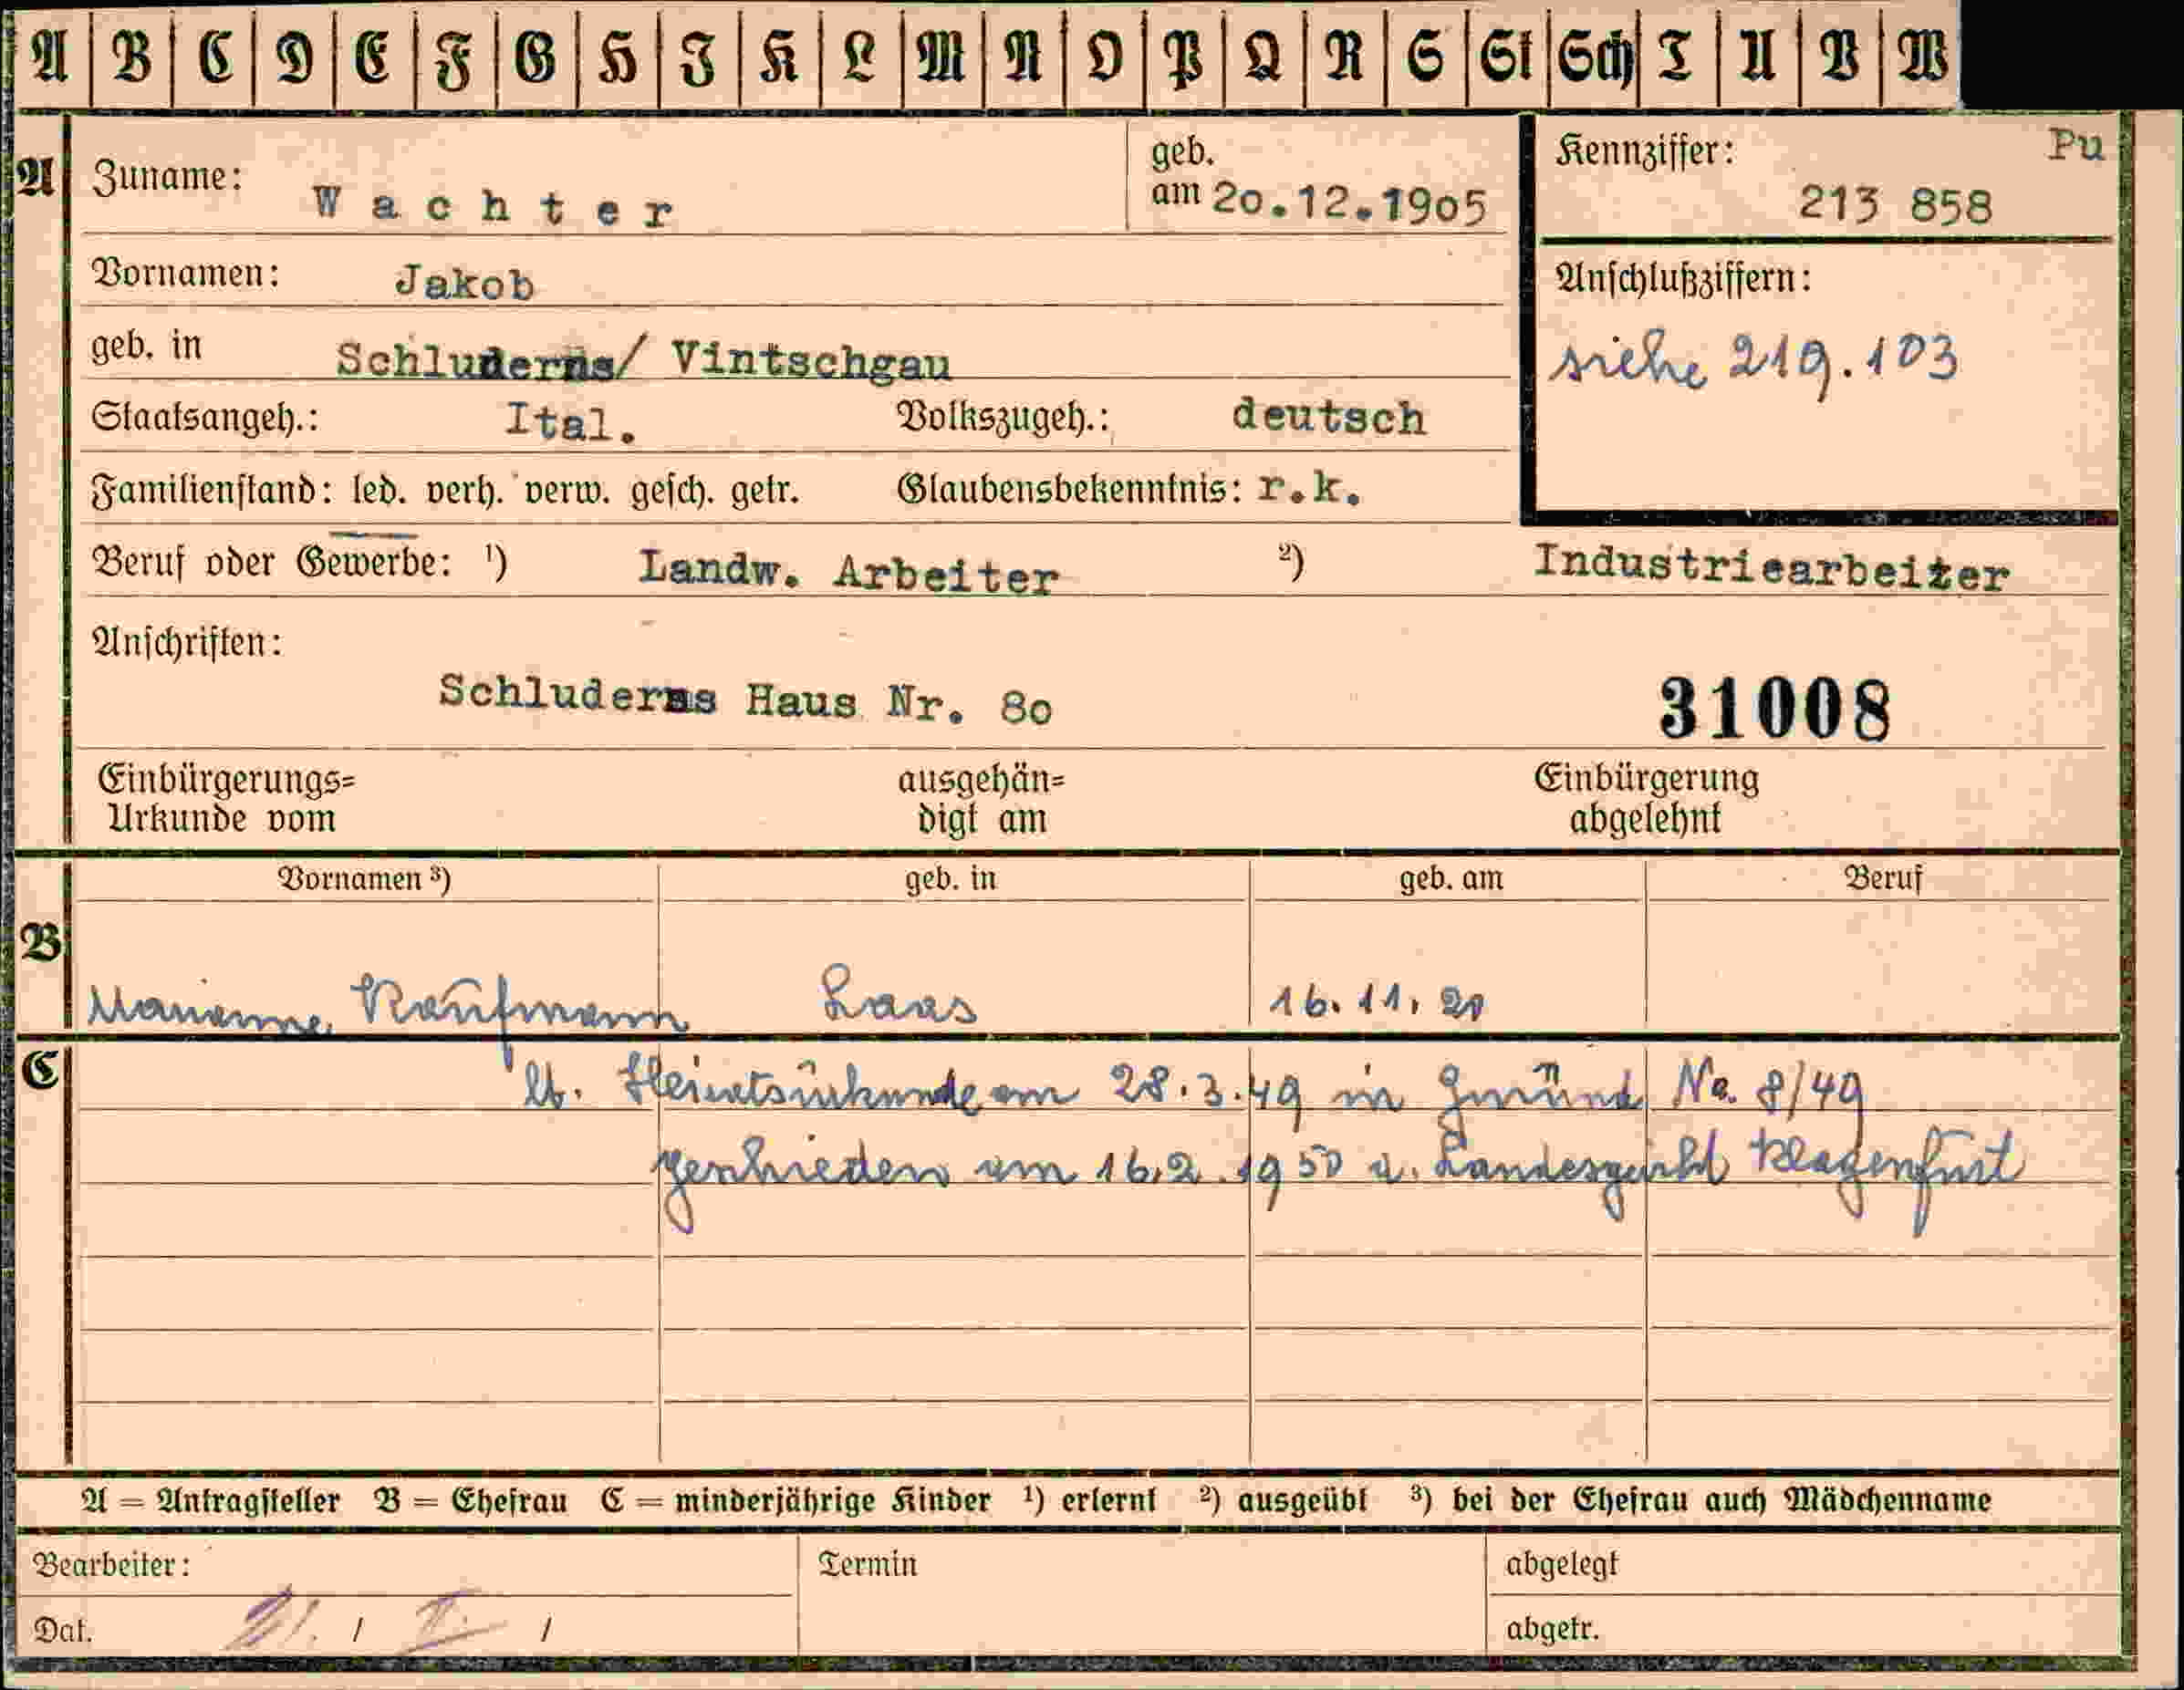 A B C D E F G H J K L M N O P Q R S St Sch T U V W
A Zuname: Wachter geb. am 20.12.1905 Kennziffer: Pu 213 858
Vornamen: Jakob Anschlußziffern:
geb. in Schluderns/ Vintschgau siehe 219.103
Staatsangeh.: Ital. Volkszugeh.: deutsch
Familienstand: led. verh. verw. gesch. getr. Glaubensbekenntnis: r.k.
Beruf oder Gewerbe: ¹) Landw. Arbeiter ²) Industriearbeiter
Anschriften:
Schluderns Haus Nr. 80 31008
Einbürgerungs= ausgehän= Einbürgerung
Urkunde vom digt am abgelehnt
Vornamen ³) geb. in geb. am Beruf
B
Marianne Kaufmann Laas 16.11.20
C lt. Heiratsurkunde am 28.3.49 in Gmünd No. 8/49
geschieden am 16.2.1950 v. Landesgericht Klagenfurt
A = Antragsteller B = Ehefrau C = minderjährige Kinder ¹) erlernt ²) ausgeübt ³) bei der Ehefrau auch Mädchenname
Bearbeiter: Termin abgelegt
Dat. / / abgetr.